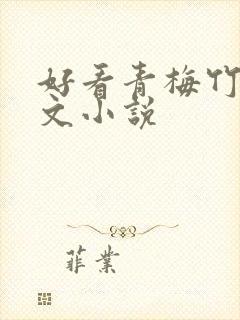 好看青梅竹
文小说
菲业